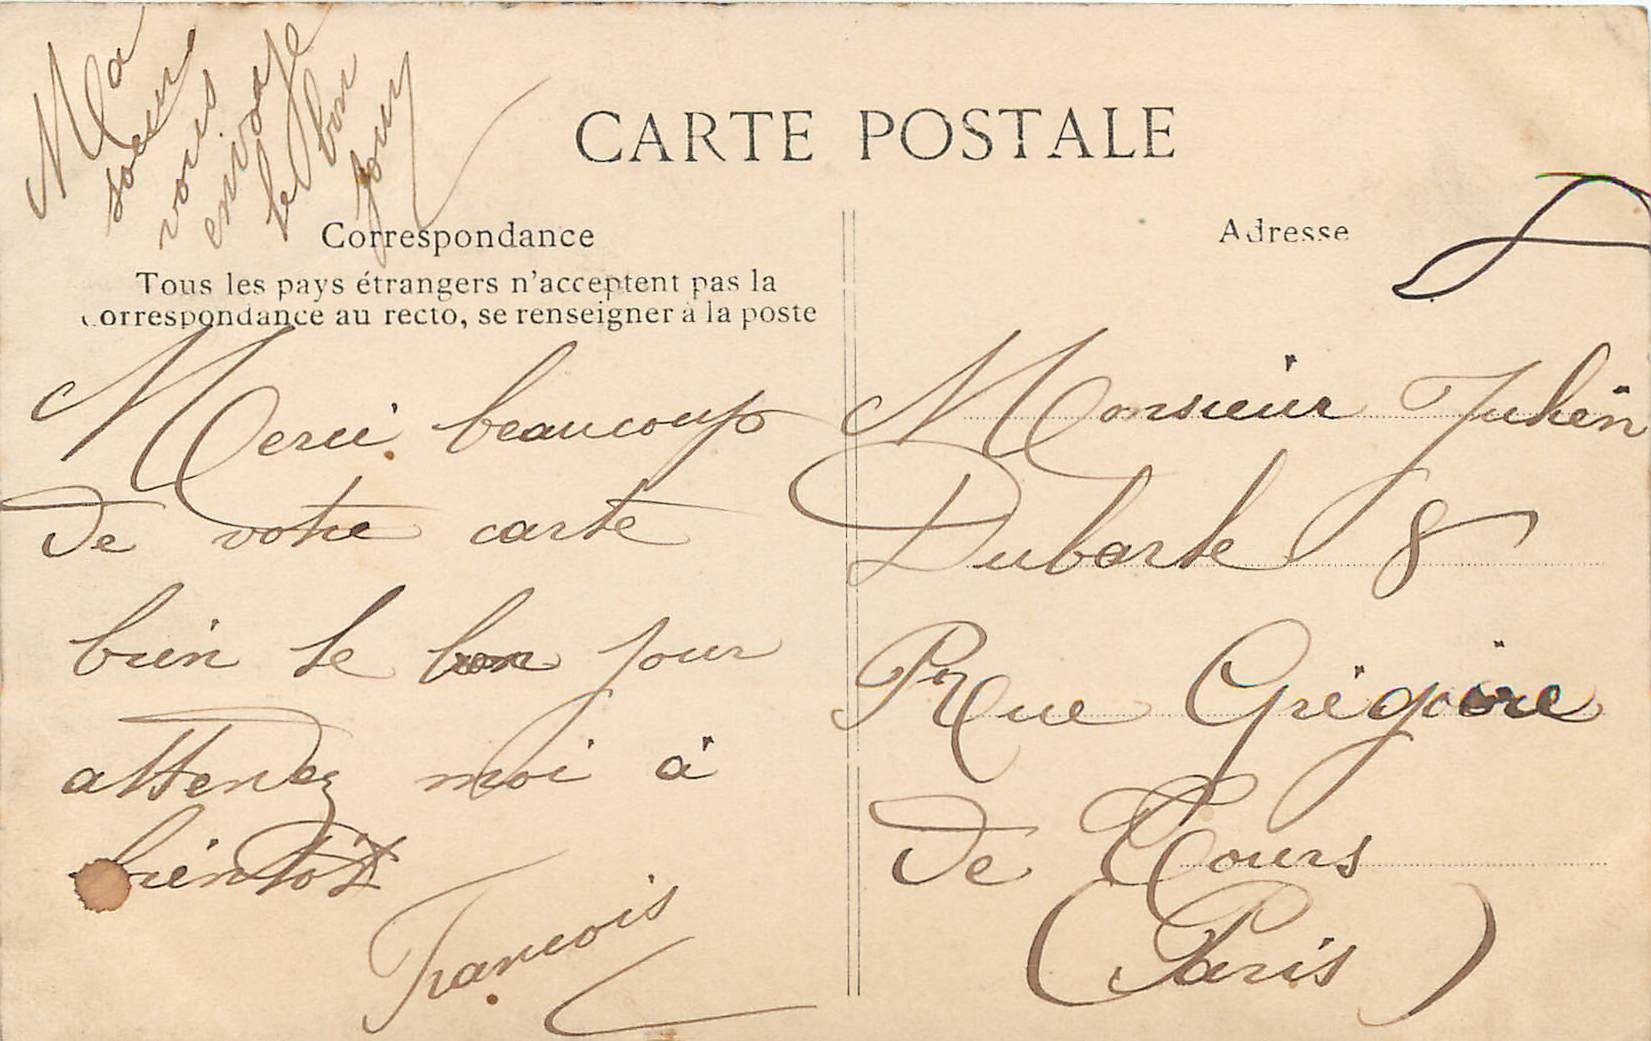 Ma
soeur
vous
envoye
le bon
jour
CARTE POSTALE
Correspondance
Tous les pays étrangers n'acceptent pas la
correspondance au recto, se renseigner à la poste
Merci beaucoup
de votre carte
bien le bon jour
attendez moi à
bientôt
François
Adresse
Monsieur Julien
Dubarle 8
Rue Grégoire
de Tours
(Paris)